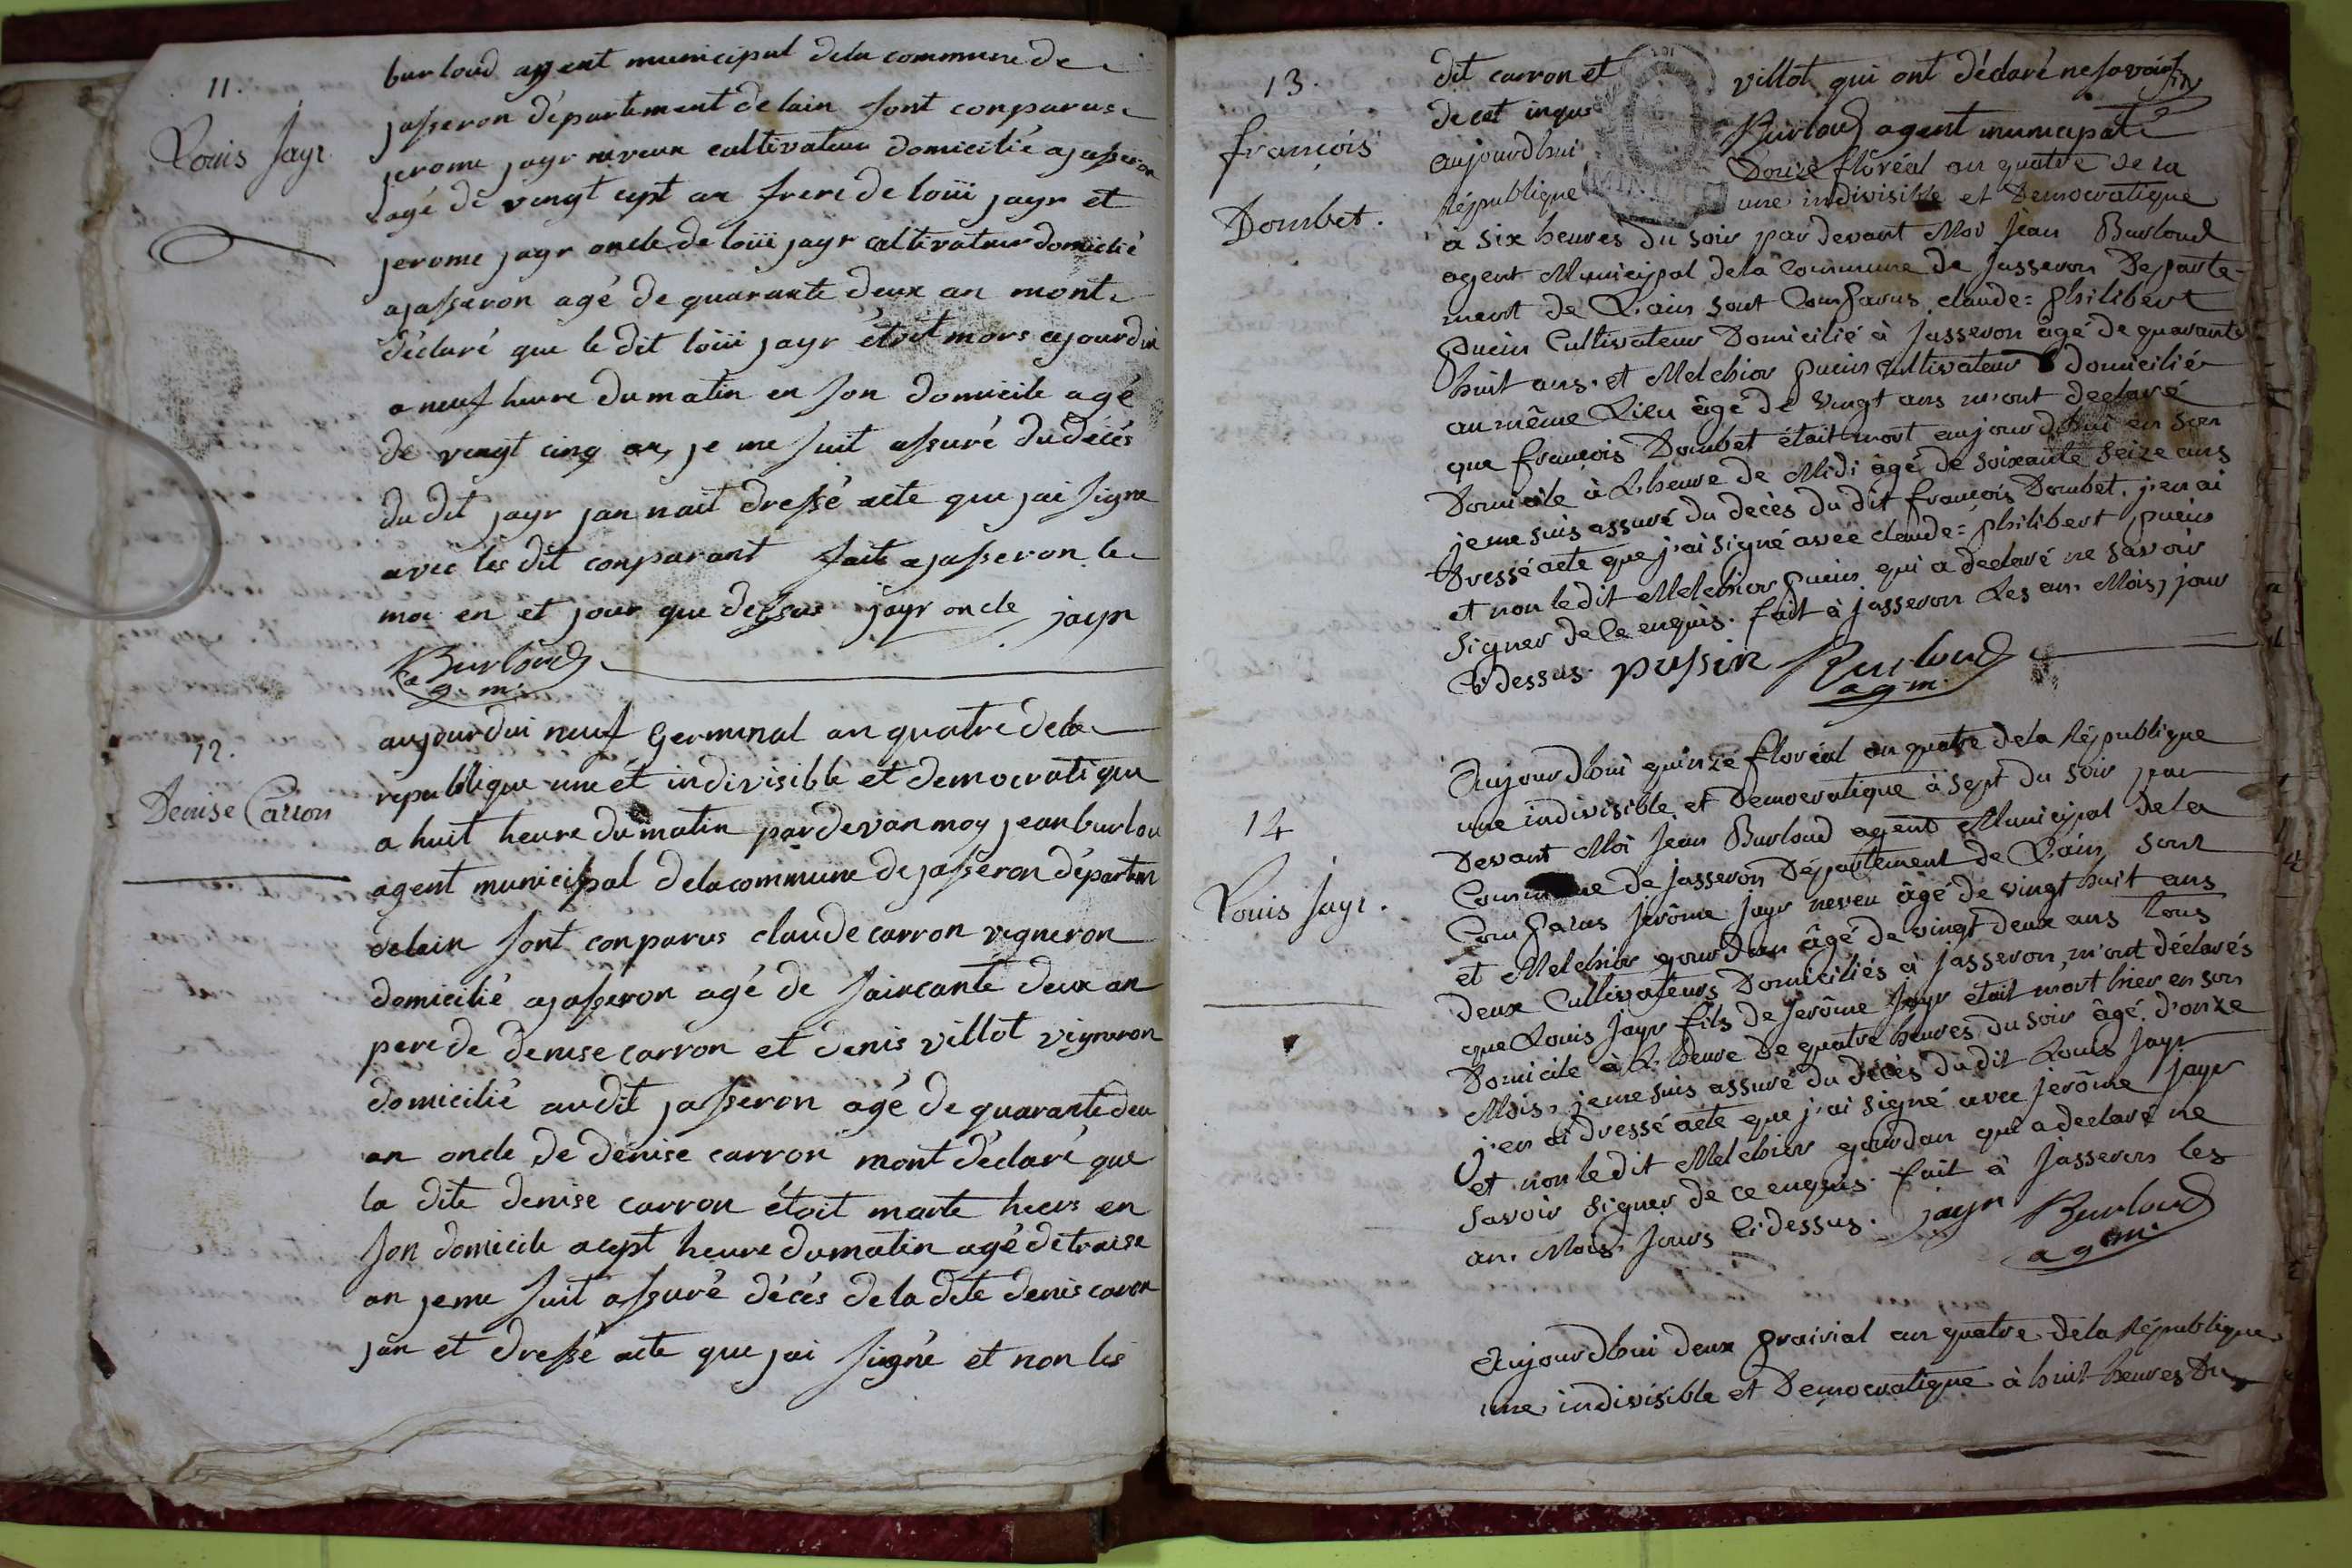 11.
Louis Jayr.
burloud agent municipal dela commune de
jasseron département delain sont conparus
jerome jayr neveux cultivateur domicilié ajasseron
agé de vingt cept an frere de loüi jayr et
jerome jayr oncle de loüi jayr cultivateur domicilié
ajasseron agé de quarante deux an mont
déclaré que le dit loüi jayr étoit mors ajourdui
a neuf heure du matin en son domicile agé
de vengt cinq an, je me suit assuré du décés
du dit jayr jan nait dressé acte que jai signe
avec les dit conparant fait a jasseron le
moi en et jour que dessus jayr oncle jayr
Burloud
a g. m.
12.
Denise Carron
aujourdui neuf Germinal an quatre dela
republique une et indivisible et democratique
a huit heure du matin par devan moy jean burlou
agent municipal dela commune de jasseron départem
delain sont conparus claude carron vigneron
domicilié ajasseron agé de saincante deux an
pere de denise carron et denis villot vigneron
domicilié audit jasseron agé de quarante deu
an oncle de denise carron mont déclaré que
la dite denise carron étoit morte hiers en
son domicile acept heure du matin agé de traise
an je me suit assuré décés dela dite denis caron
jan et dressé acte que jai signé et non les
13.
françois
Dombet.
dit carron et villot qui ont déclaré ne savoir
de cet inquis Burloud agent municipal
aujourd'hui Douze floréal an quatre de la
République une indivisible et Democratique
à six heures du soir par devant Moi Jean Burloud
agent Municipal dela Commune de Jasseron Departe-
ment de L'ain sont Comparus claude=philibert
pucin Cultivateur Domicilié à Jasseron âgé de quarante
huit ans. et Melchior pucin cultivateur domicilié
au même Lieu âgé de vingt ans m'ont declaré
que françois Dombet était mort aujourd'hui en son
Domicile à L'heure de Midi âgé de soixante seize ans
je me suis assuré du decès du dit françois Dombet. j'en ai
Dressé acte que j'ai signé avec claude=philibert pucin
et non ledit Melchior pucin qui a declaré ne savoir
signer de ce enquis. fait à jasseron Les an, Mois, jour
Ci dessus. pussin Burloud
a g m.
14
Louis Jayr.
Aujourdhui quinze floréal an quatre dela République
une indivisible et Democratique à sept du soir par
Devant Moi Jean Burloud agent Municipal Dela
Commune de Jasseron Département de L'ain sont
Comparus Jerôme Jayr neveu âgé de vingt huit ans
et Melchior gourdan âgé de vingt deux ans tous
deux Cultivateurs Domiciliés à Jasseron, m'ont déclarés
que Louis Jayr fils de Jerôme Jayr était mort hier en son
Domicile à L'heure de quatre heures du soir âgé d'onze
Mois, je me suis assuré du décès du dit Louis Jayr
j'en ai dressé acte que j'ai signé avec jerôme jayr
et non le dit Melchior gourdan qui a declaré ne
savoir signer de ce enquis. fait à Jasseron les
an. Mois, Jours Ci dessus. jayr Burloud
a g m.
Aujourdhui deux prairial an quatre dela République
une indivisible et Democratique à huit heures Du